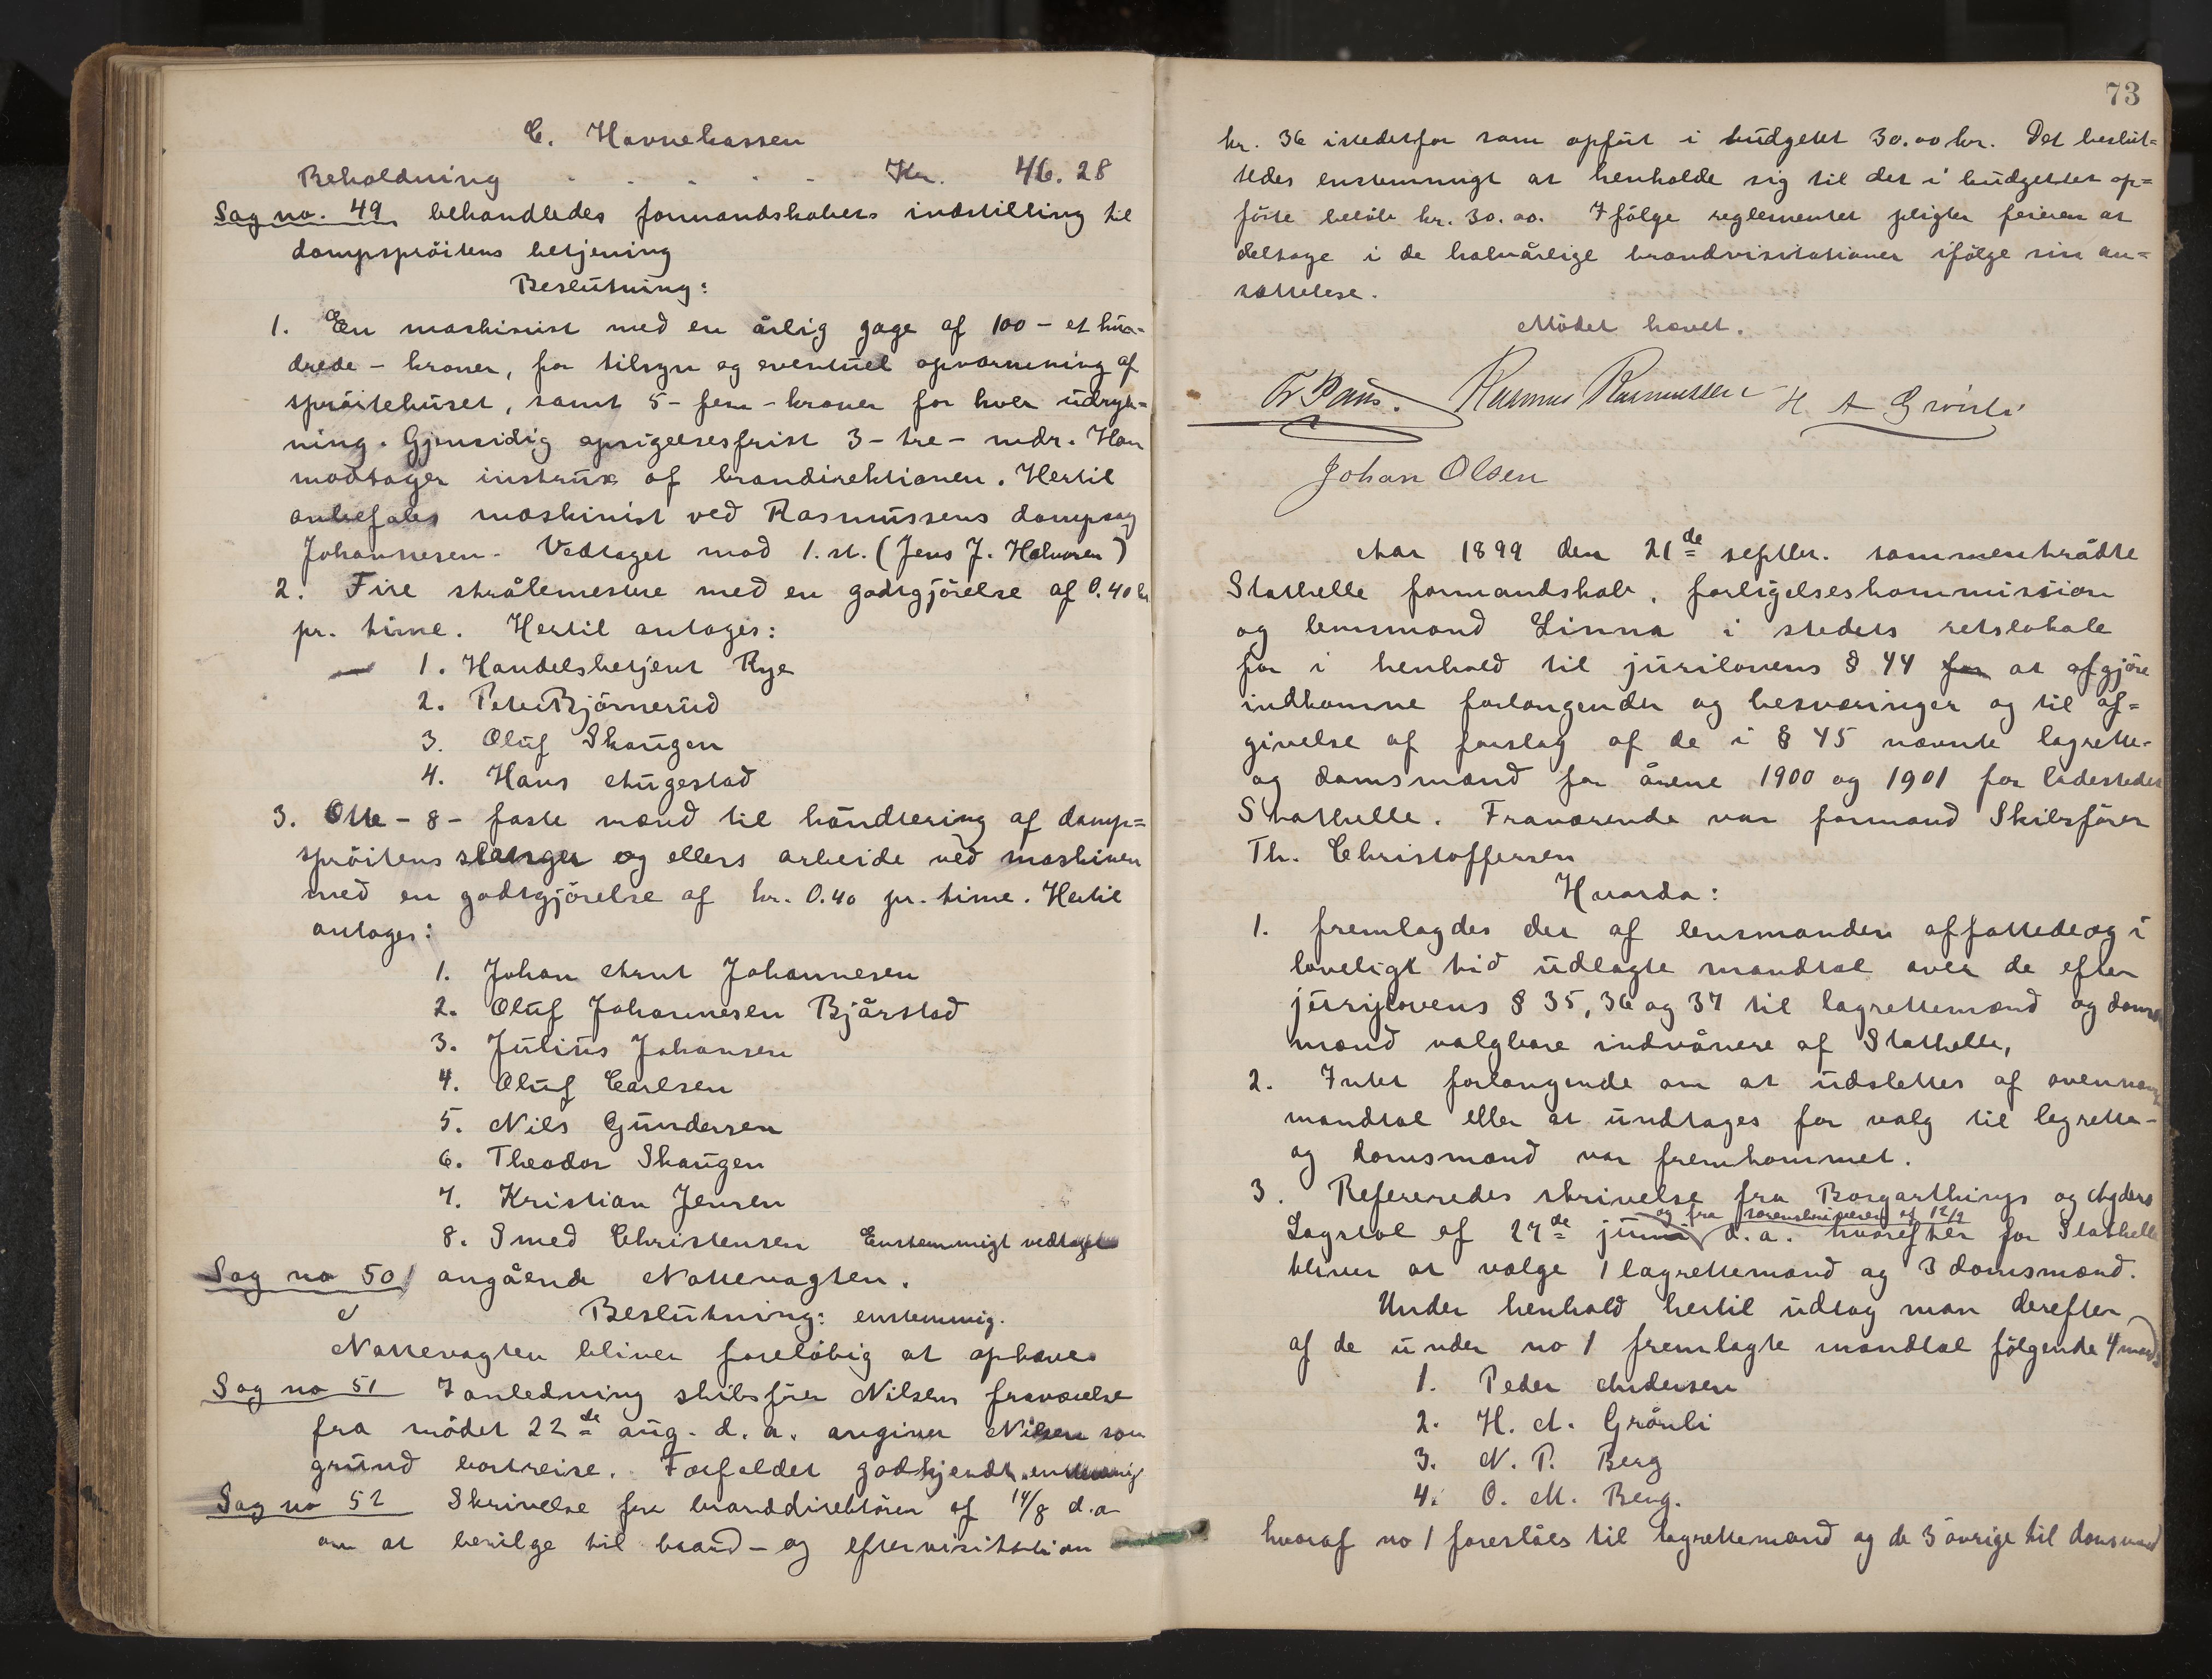 C. Havnekassen
Beholdning . . . . . Kr. 46.28
Sag no. 49 behandledes formandskabets indstilling til
dampspröitens betjening
Beslutning:
1. En maskinist med en årlig gage af 100 - et hun-
drede - kroner, for tilsyn og eventuel opvarmning af
spröitehuset, samt 5 - fem - kroner for hver udryk-
ning. Gjensidig opsigelsesfrist 3 - tre - mdr. Han
modtager instrux af brandirektionen. Hertil
anbefales maskinist ved Rasmussens dampsag
Johannesen. Vedtaget mod 1. st. (Jens J. Halvorsen)
2. Fire strålemestre med en godtgjörelse af 0.40 kr
pr. time. Hertil antages:
1. Handelsbetjent Rye
2. Peter Björnerud
3. Oluf Skaugen
4. Hans Augestad
3. Otte - 8 - faste mænd til håndtering af damp=
spröitens slanger og ellers arbeide ved maskinen
med en godtgjörelse af kr. 0.40 pr. time. Hertil
antages:
1. Johan Arnt Johannesen
2. Oluf Johannesen Bjårstad
3. Julius Johansen
4. Oluf Carlsen
5. Nils Gundersen
6. Theodor Skaugen
7. Kristian Jensen
8. Smed Christensen Enstemmigt vedtaget
Sag no 50 angående Nattevagten.
Beslutning: enstemmig.
Nattevagten bliver foreløbig at ophæves
Sag no 51 I anledning skibsförer Nilsens fraværelse
fra mödet 22de aug. d. a. angiver Nilsen som
grund bortreise. Forfaldet godkjendt enstemmig
Sag no 52 Skrivelse fra branddirektören af 14/8 d.a
om at bevilge til brand- og eftervisitation
73
kr. 36 istedetfor som opfört i budgettet 30.00 kr. Det beslut=
tedes enstemmigt at henholde sig til det i budgettet op=
förte belöb kr. 30.00. Ifölge reglementet pligter feieren at
deltage i de halvårlige brandvisitationer ifölge sin an=
sættelse.
Mödet hævet.
Rasmus Rasmussen H A Grönli
Johan Olsen
Aar 1899 den 21de septbr. sammentrådte
Stathelle formandskab, forligelseskommission
og lensmand Linna i stedets retslokale
for i henhold til jurilovens § 44 for at afgjöre
indkomne forlangender og besværinger og til af=
givelse af forslag af de i § 45 nævnte lagrette-
og domsmænd for årene 1900 og 1901 for ladestedet
Stathelle. Fraværende var formand Skibsförer
Th. Christoffersen
Hvorda:
1. fremlagdes det af lensmanden affattede og i
loveligt tid udlagte mandtal over de efter
jurylovens § 35, 36 og 37 til lagrettemænd og doms
mænd valgbare indvånere af Stathelle,
2. Intet forlangende om at udslettes af ovennævnt
mandtal eller at undtages for valg til lagrette-
og domsmænd var fremkommet.
3. Refereredes skrivelse fra Borgarthings og Agders
og fra sorenskriveren af 12/9
Lagstol af 27de juni d.a. hvorefter for Stathelle
bliver at vælge 1 lagrettemand og 3 domsmænd.
Under henhold hertil udtog man derefter
af de under no 1 fremlagte mandtal fölgende 4 mænd
1. Peder Andersen
2. H. A. Grönli
3. N. P. Berg
4. O. M. Berg.
hvoraf no 1 foreslåes til lagrettemand og de 3 övrige til domsmænd